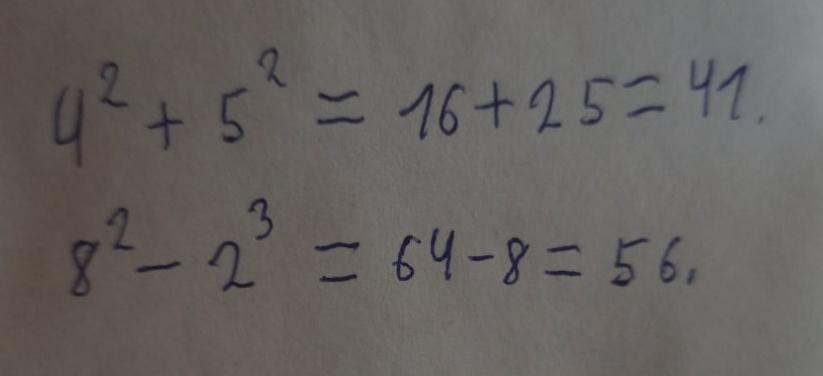 4² + 5² = 16+25=41.
8² - 2³ = 64-8=56.